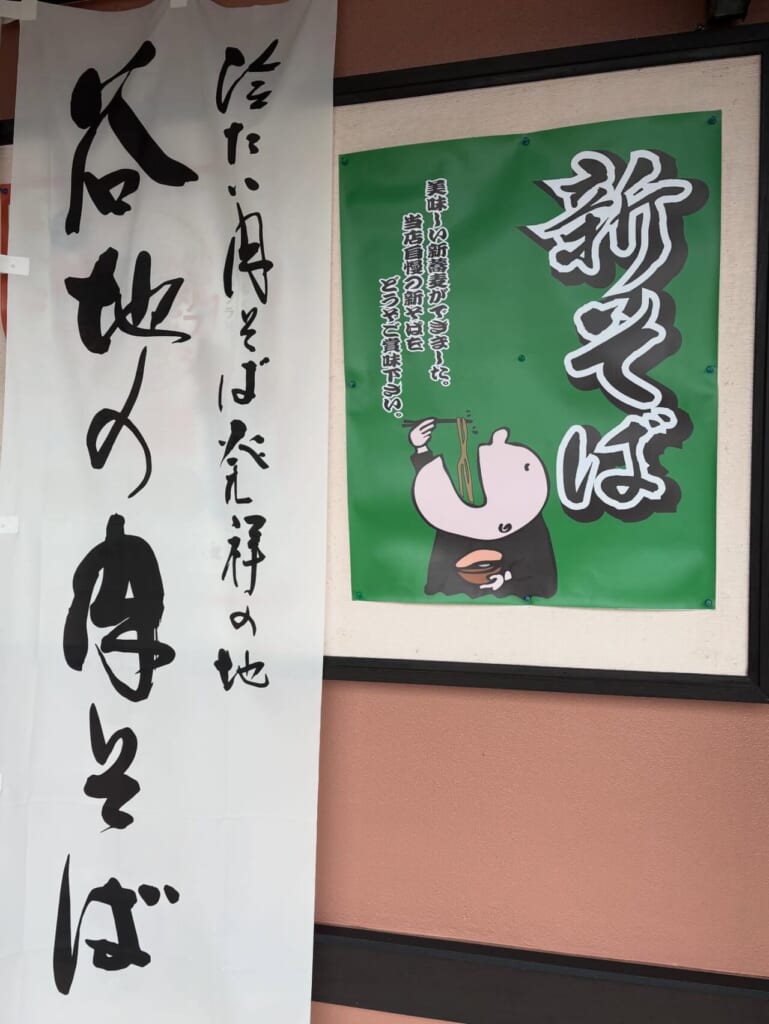 冷たい肉そば発祥の地
谷地の肉そば
新そば
美味~い新蕎麦ができました。
当店自慢の新そばを
どうぞご賞味下さい。